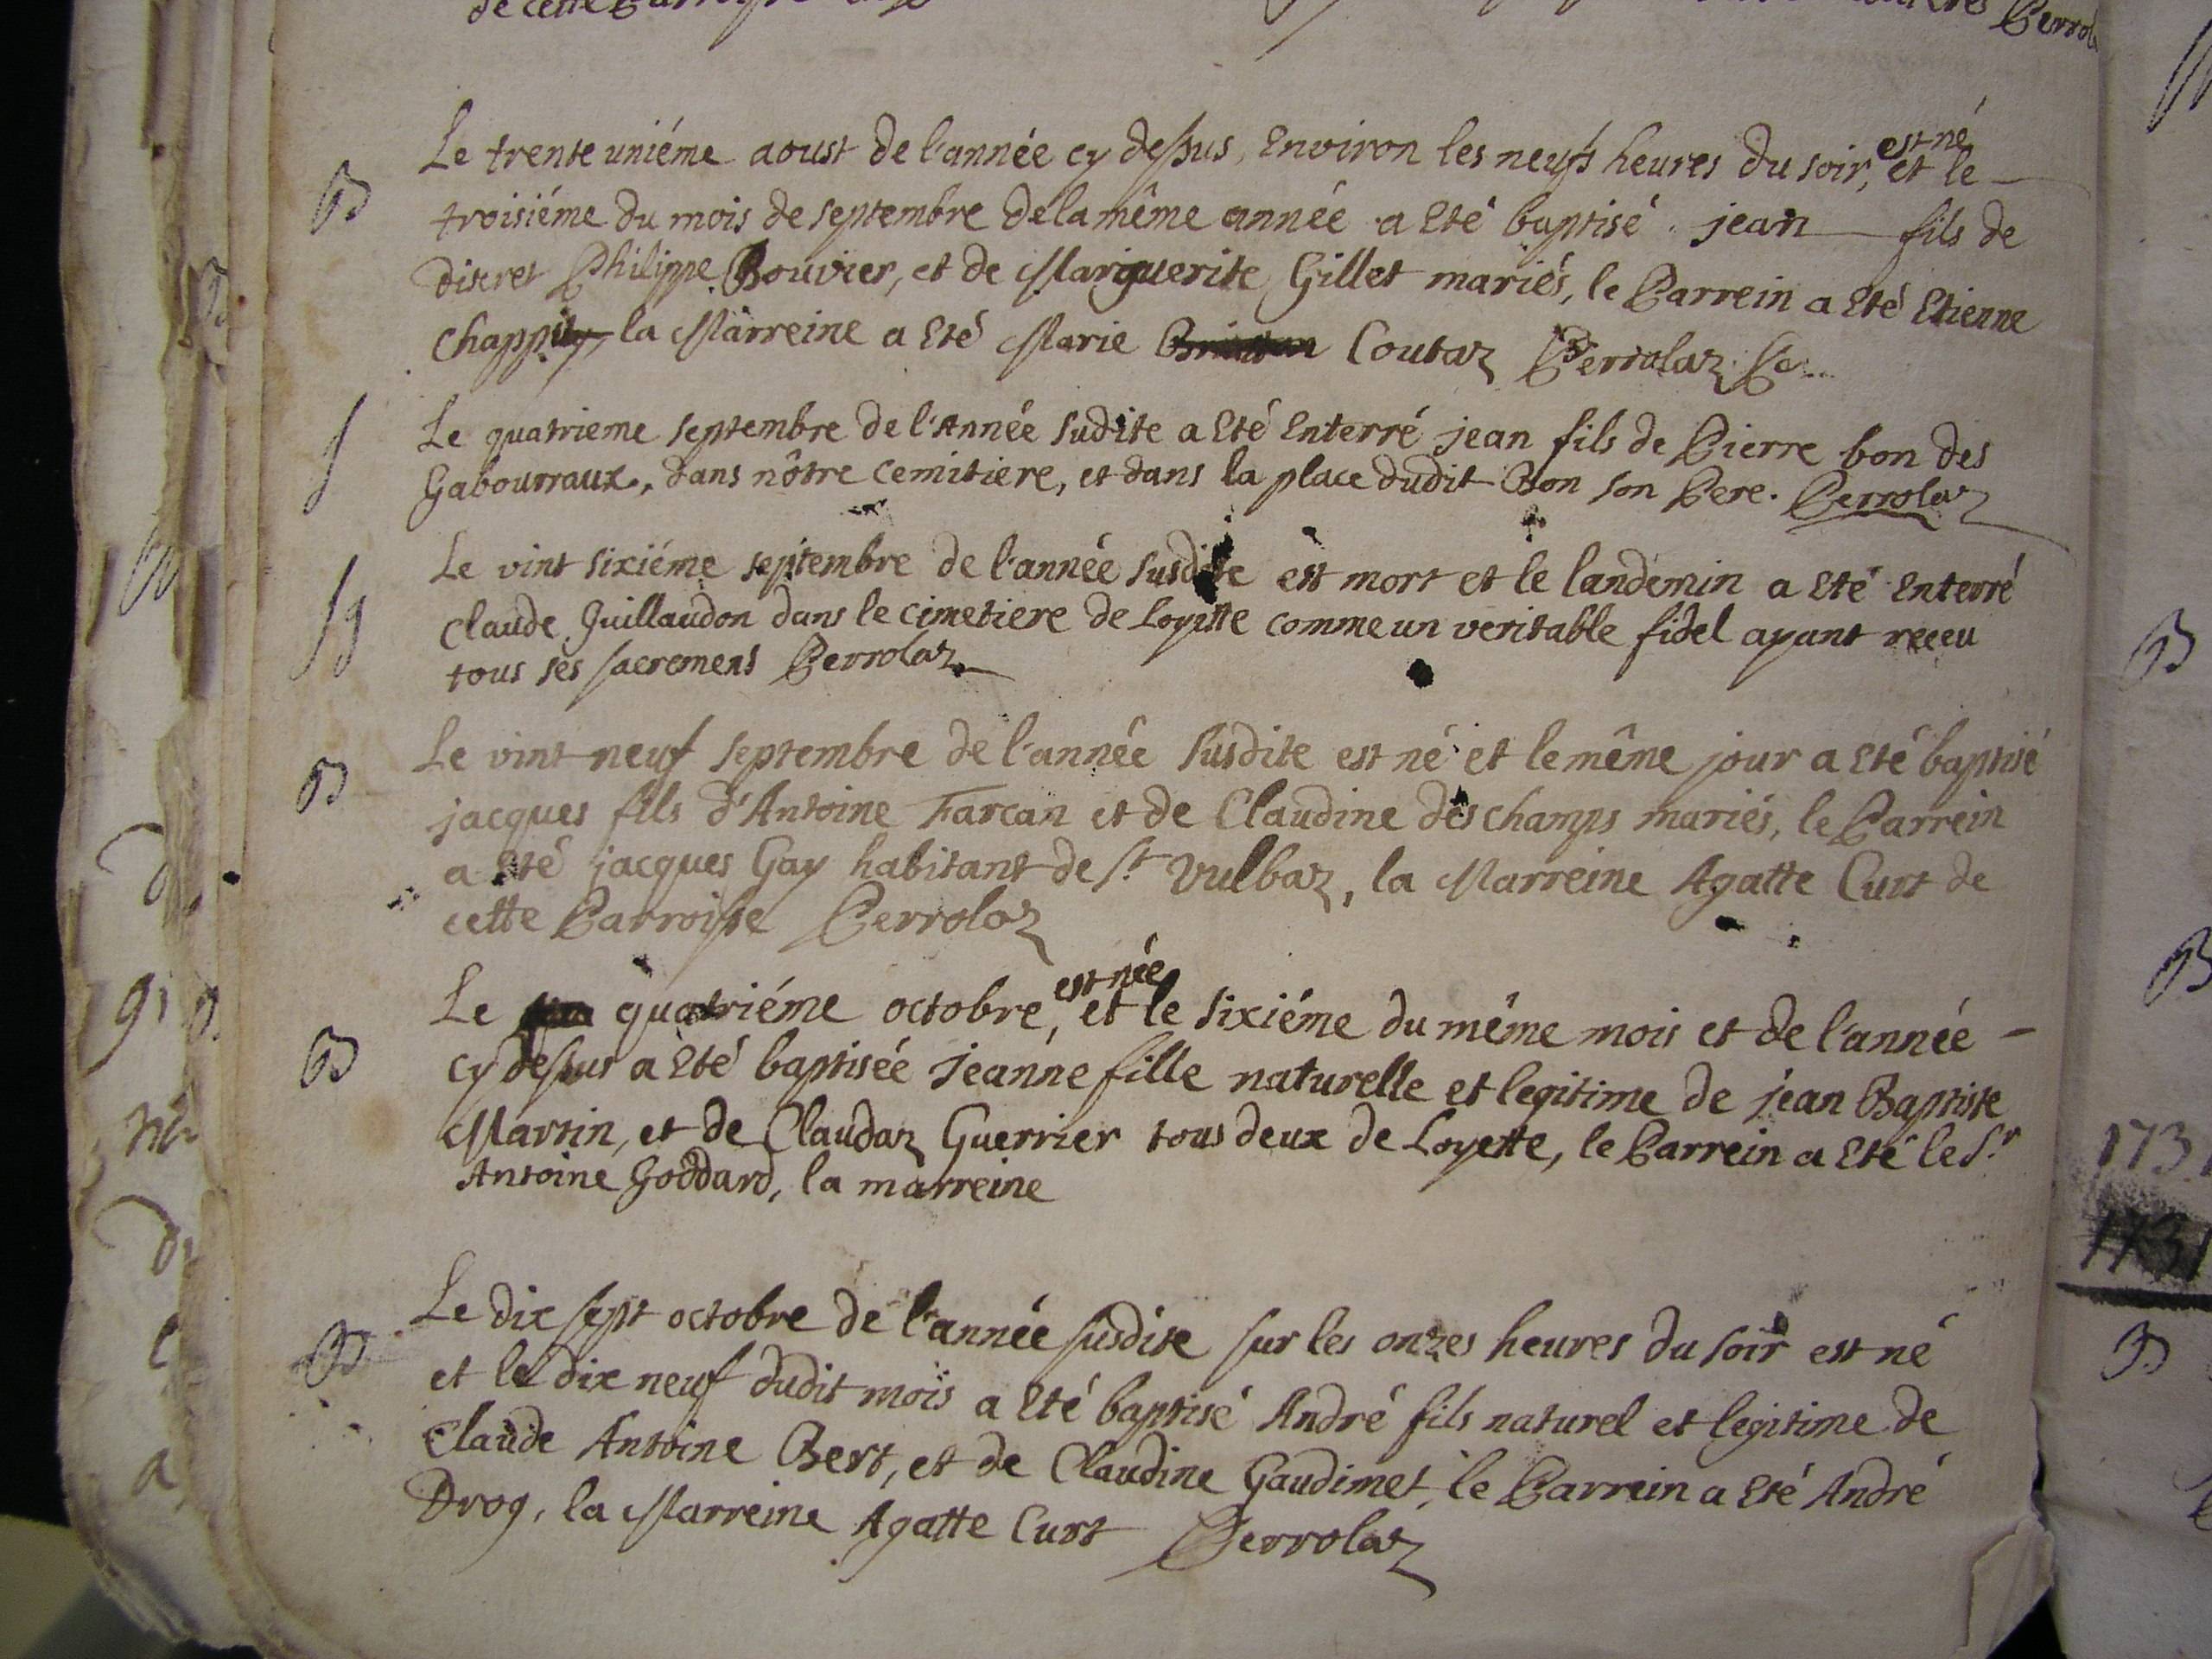 de cette
Perrol
Le trente uniéme aoust de l'année cy dessus, Environ les neufs heures du soir, est né et le
B
troisiéme du mois de septembre de la même année a Eté baptisé jean fils de
discret Philippe Bouvier, et de Marguerite Gillet mariés, le Parrein a Eté Etienne
la Marreine a Eté Marie Coutaz Perrolaz
Le quatrieme septembre de l'Année sudite a Eté Enterré jean fils de Pierre bon des
Gabourraux, dans nôtre cemitiere, et dans la place dudit Bon son Pere. Perrolaz
Le vint sixiéme septembre de l'année susdite est mort et le landemin a Eté Enterré
claude Guillaudon dans le cimetiere de Loyette comme un veritable fidel ayant receu
tous ses sacremens Perrolaz
Le vint neuf septembre de l'année susdite est né et le même jour a Eté baptisé
B
jacques fils d'Antoine Farcan et de Claudine deschamps mariés, le Parrein
a Eté jacques Gay habitant de St Vulbaz, la Marreine Agatte Curt de
cette Parroisse Perrolaz
Le quatriéme octobre, est née et le sixiéme du même mois et de l'année -
B
cy dessus a Eté baptisée jeanne fille naturelle et legitime de jean Baptiste
Martin, et de Claudaz Guerrier tous deux de Loyette, le Parrein a Eté le Sr
Antoine Goddard, la marreine
Le dix sept octobre de l'année susdite sur les onzes heures du soir est né
B
et le dix neuf dudit mois a Eté baptisé André fils naturel et legitime de
Claude Antoine Bert, et de Claudine Gaudimet, le Parrein a Eté André
Drog, la Marreine Agatte Curt Perrolaz
B
B
1731
1731
B